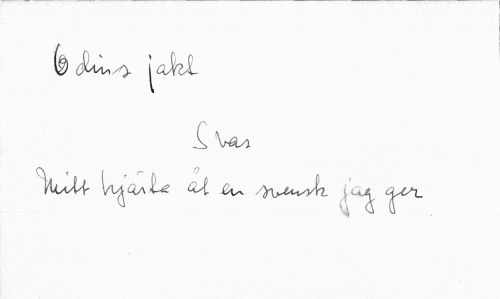 Odins jakt
Svar
Mitt hjärta åt en svensk jag ger